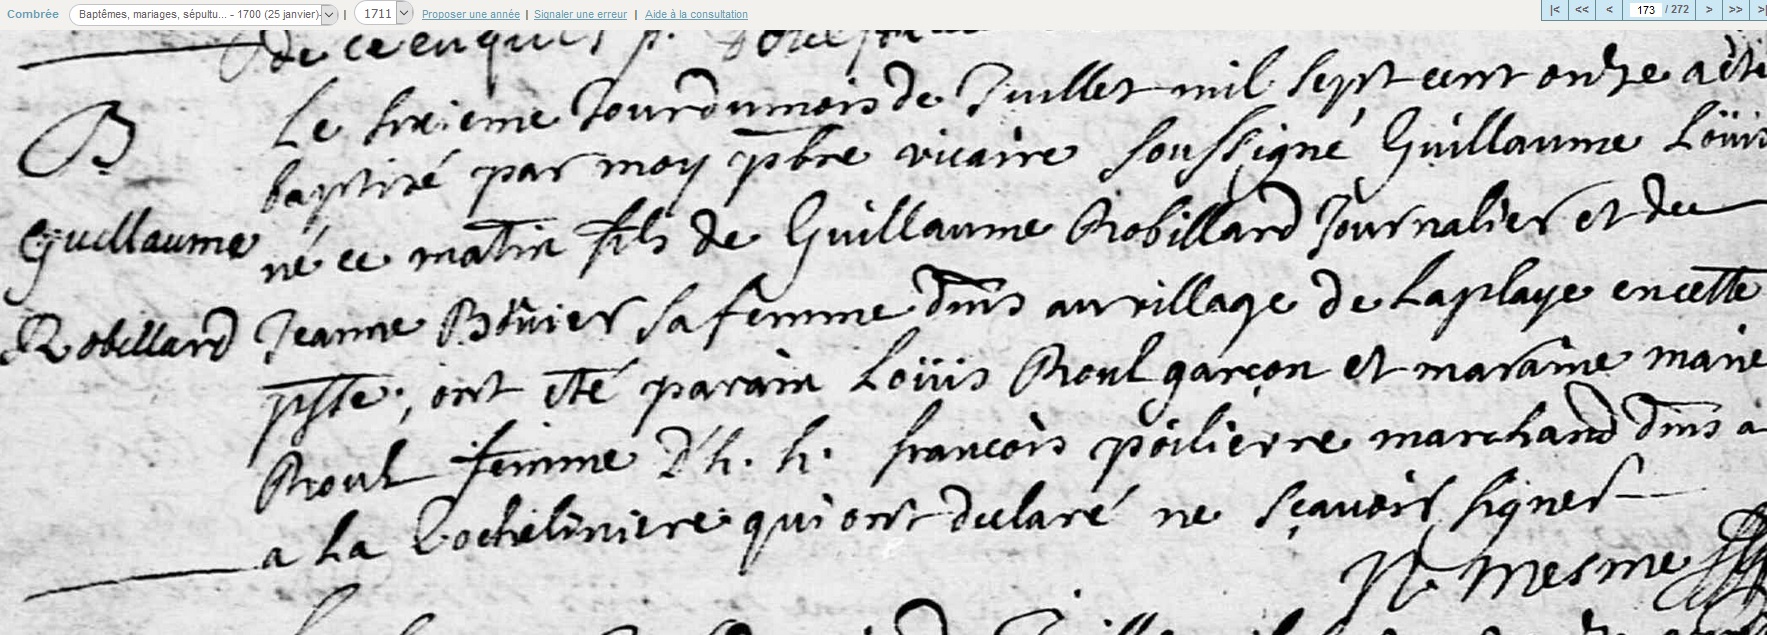 Combrée Baptêmes, mariages, sépultu... - 1700 (25 janvier)- | 1711 Proposer une année | Signaler une erreur | Aide à la consultation |< << < 173 / 272 > >> >|
de ce enquis
B Le sixieme Jour du mois de Juillet mil sept cent onze a été
baptizé par moy pbre vicaire soussigné Guillaume Loüis
Guillaume né ce matin fils de Guillaume Robillard Journalier et de
Robillard Jeanne sa femme dms au village de Laplaye en cette
psse; ont été parain Loüis Roul garçon et maraine marie
Roul femme d'h. h. francois poilievre marchand dms a
a la qui ont declaré ne sçavoir signer
Mesme